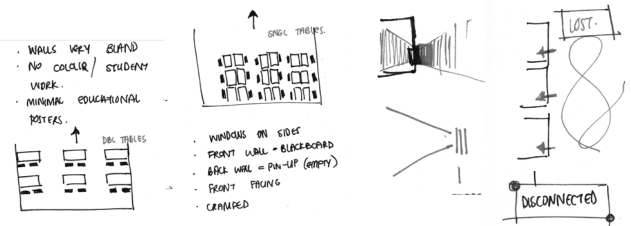 • WALLS VERY BLAND
• NO COLOUR / STUDENT
WORK.
• MINIMAL EDUCATIONAL
POSTERS.
DBL TABLES
SNGL TABLES.
• WINDOWS ON SIDES
• FRONT WALL = BLACKBOARD
• BACK WALL = PIN-UP (EMPTY)
• FRONT FACING
• CRAMPED
LOST.
DISCONNECTED